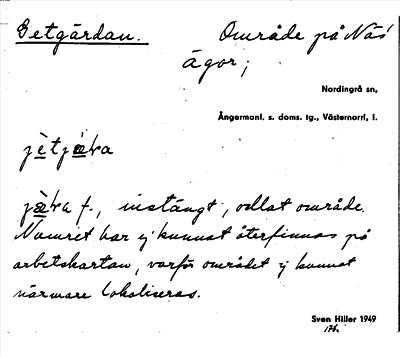 Getgärdan. Område på Näs'
ägor;
Nordingrå sn,
Ångermanl. s. doms. tg., Västernorrl. l.
jètjæ̀ra
jæ̀ra f., instängt, odlat område.
Namnet har ej kunnat återfinnas på
arbetskartan, varför området ej kunnat
närmare lokaliseras.
Sven Hiller 1949